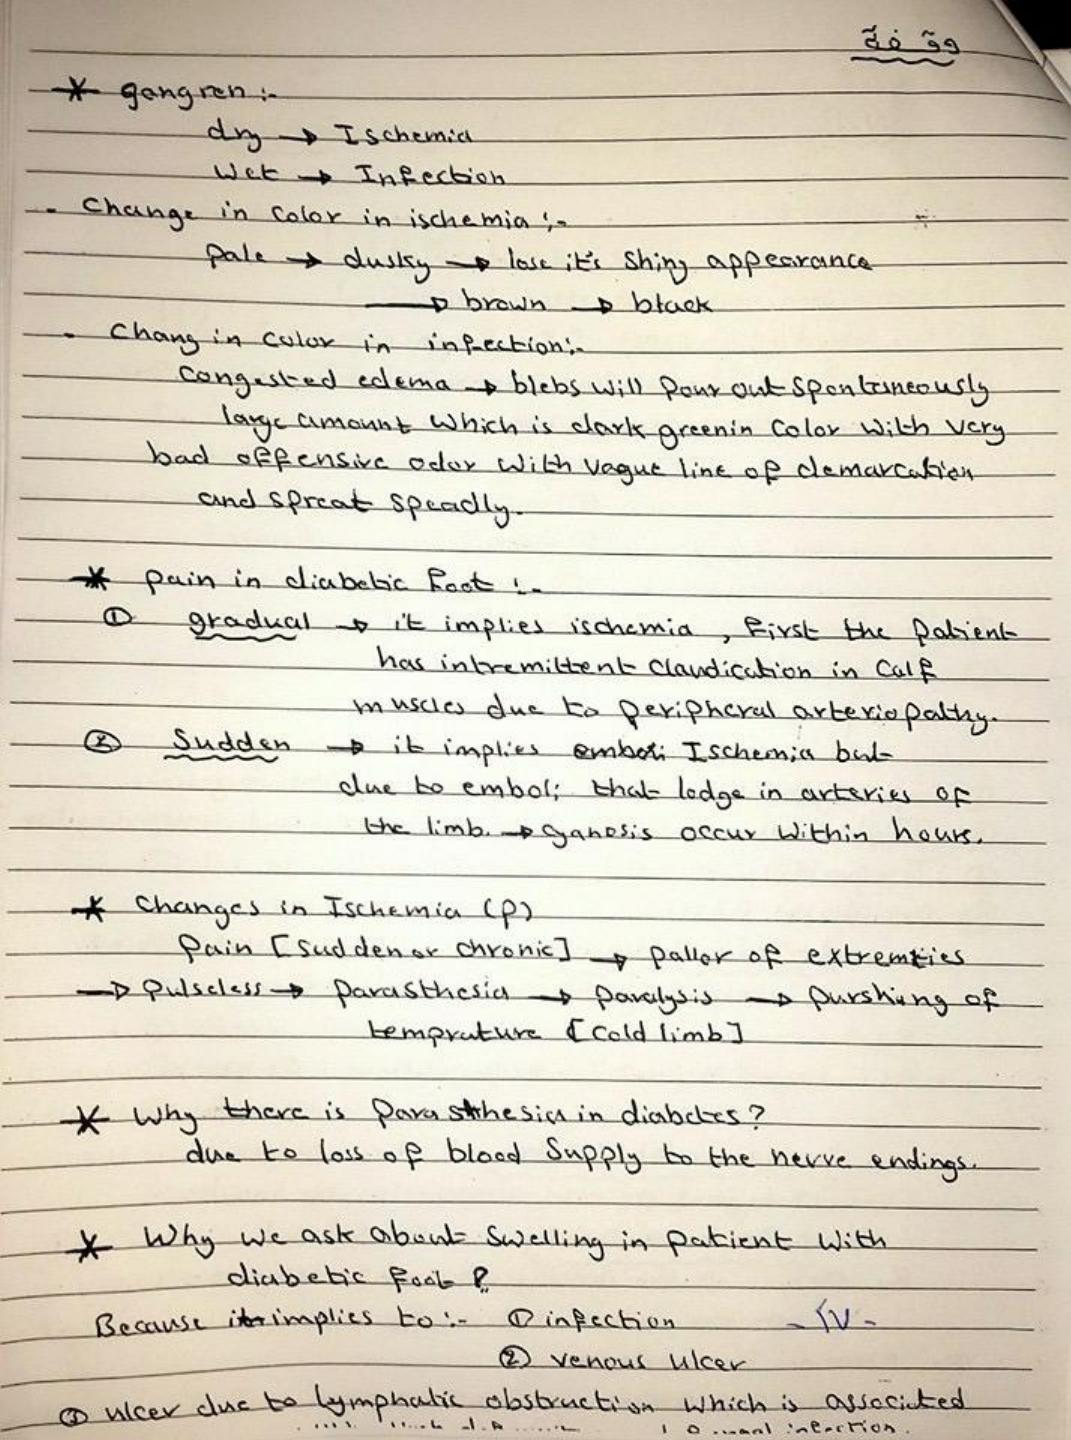 * gangren :-
dry → Ischemia
Wet → Infection
- Change in color in ischemia :-
Pale → dusky → lose it's Shiny appearance
→ brown → black
- Chang in color in infection:-
Congested edema → blebs will Pour out Spontaneously
large amount which is dark greenin Color with very
bad offensive odor with vague line of demarcation
and spreat speadly.
* pain in diabetic foot :-
① gradual → it implies ischemia , first the patient
has intremittent Claudication in Calf
muscles due to peripheral arteriopathy.
② Sudden → it implies Ischemia but
due to emboli that lodge in arteries of
the limb. → cyanosis occur within hours.
* Changes in Ischemia (P)
Pain [Sudden or chronic] → pallor of extremties
→ pulseless → parasthesia → paralysis → purshing of
temprature [cold limb]
* Why there is Parasthesia in diabetes?
due to loss of blood Supply to the nerve endings.
* Why we ask about Swelling in patient with
diabetic foot ?
Because implies to :- ① infection - ٢٧ -
② venous ulcer
③ ulcer due to lymphatic obstruction which is associted
infection.